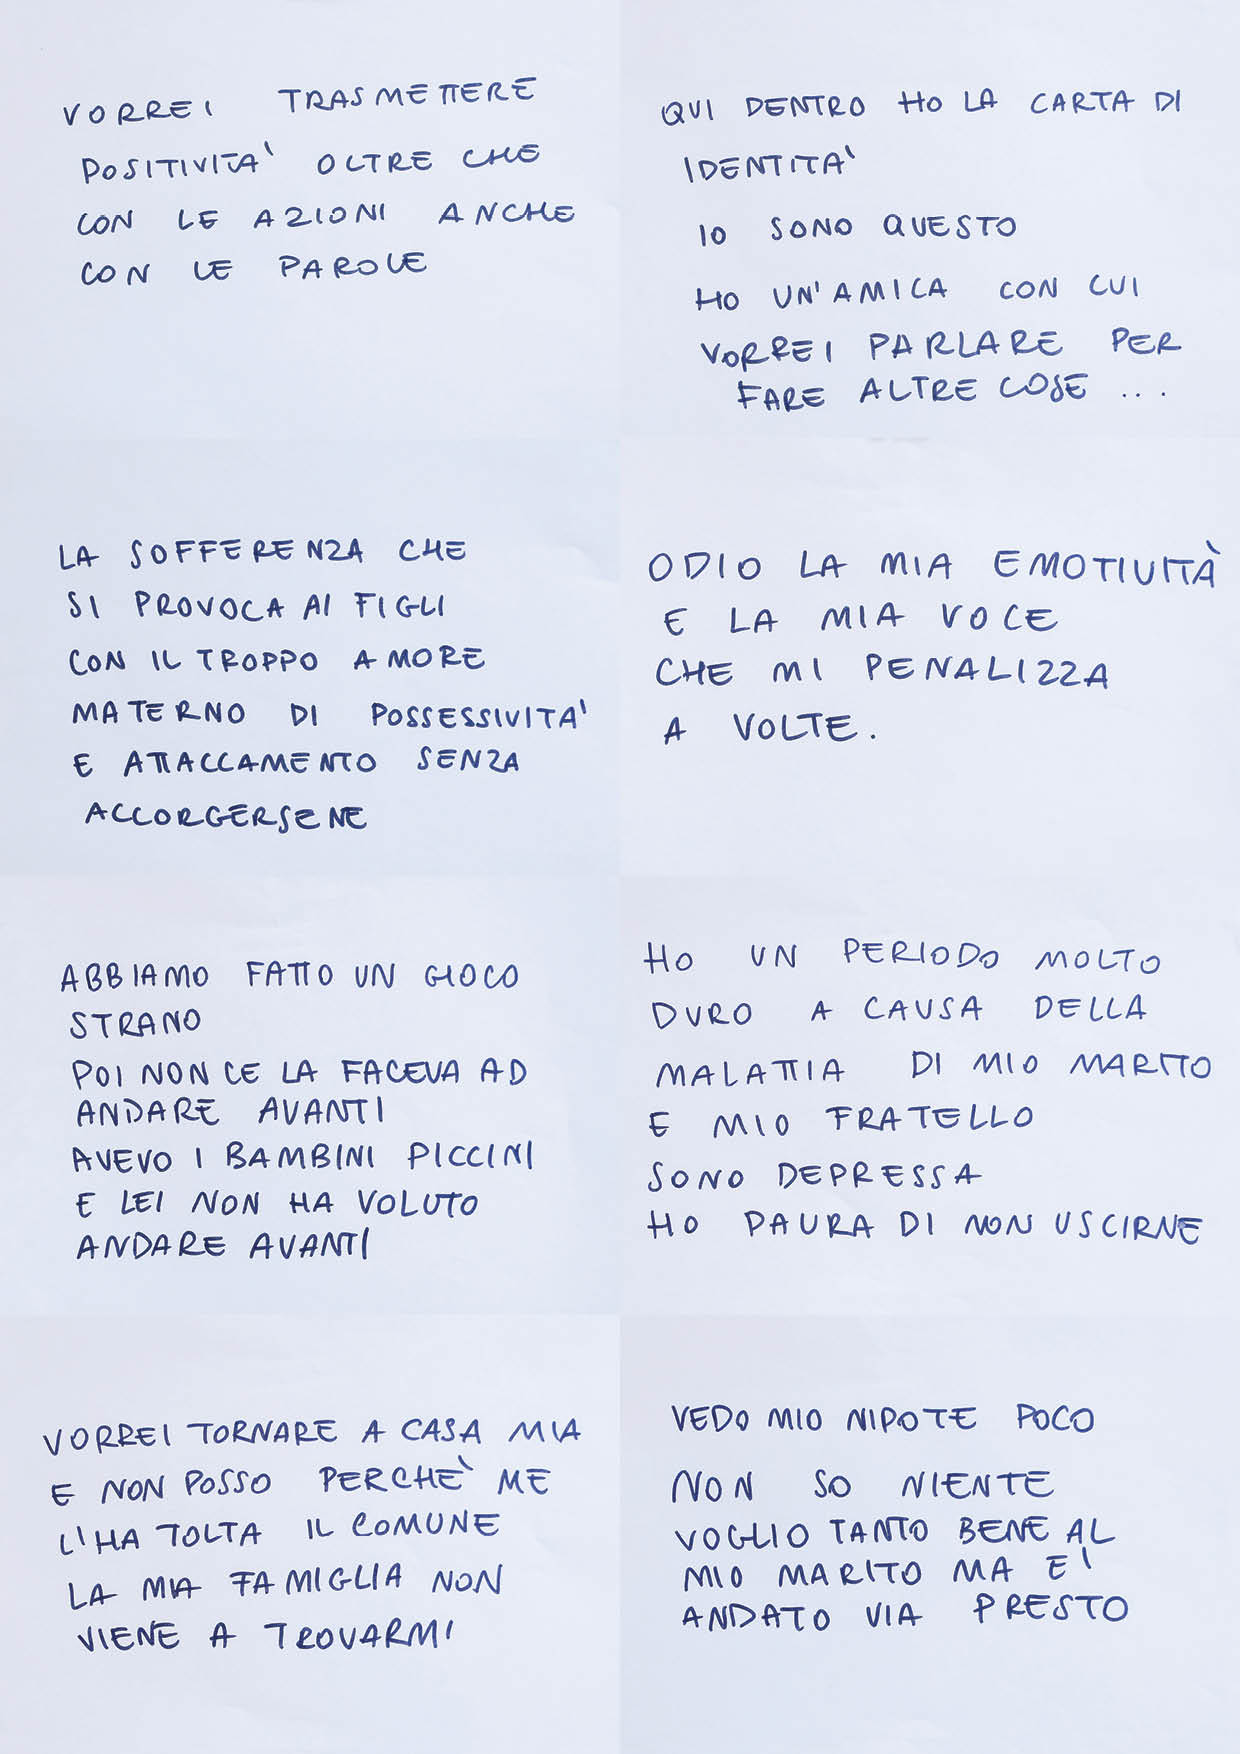 VORREI TRASMETTERE
POSITIVITA' OLTRE CHE
CON LE AZIONI ANCHE
CON LE PAROLE
QUI DENTRO HO LA CARTA DI
IDENTITA'
IO SONO QUESTO
HO UN'AMICA CON CUI
VORREI PARLARE PER
FARE ALTRE COSE ...
LA SOFFERENZA CHE
SI PROVOCA AI FIGLI
CON IL TROPPO AMORE
MATERNO DI POSSESSIVITA'
E ATTACCAMENTO SENZA
ACCORGERSENE
ODIO LA MIA EMOTIVITÀ
E LA MIA VOCE
CHE MI PENALIZZA
A VOLTE.
ABBIAMO FATTO UN GIOCO
STRANO
POI NON CE LA FACEVA AD
ANDARE AVANTI
AVEVO I BAMBINI PICCINI
E LEI NON HA VOLUTO
ANDARE AVANTI
HO UN PERIODO MOLTO
DURO A CAUSA DELLA
MALATTIA DI MIO MARITO
E MIO FRATELLO
SONO DEPRESSA
HO PAURA DI NON USCIRNE
VORREI TORNARE A CASA MIA
E NON POSSO PERCHÈ ME
L'HA TOLTA IL COMUNE
LA MIA FAMIGLIA NON
VIENE A TROVARMI
VEDO MIO NIPOTE POCO
NON SO NIENTE
VOGLIO TANTO BENE AL
MIO MARITO MA E'
ANDATO VIA PRESTO